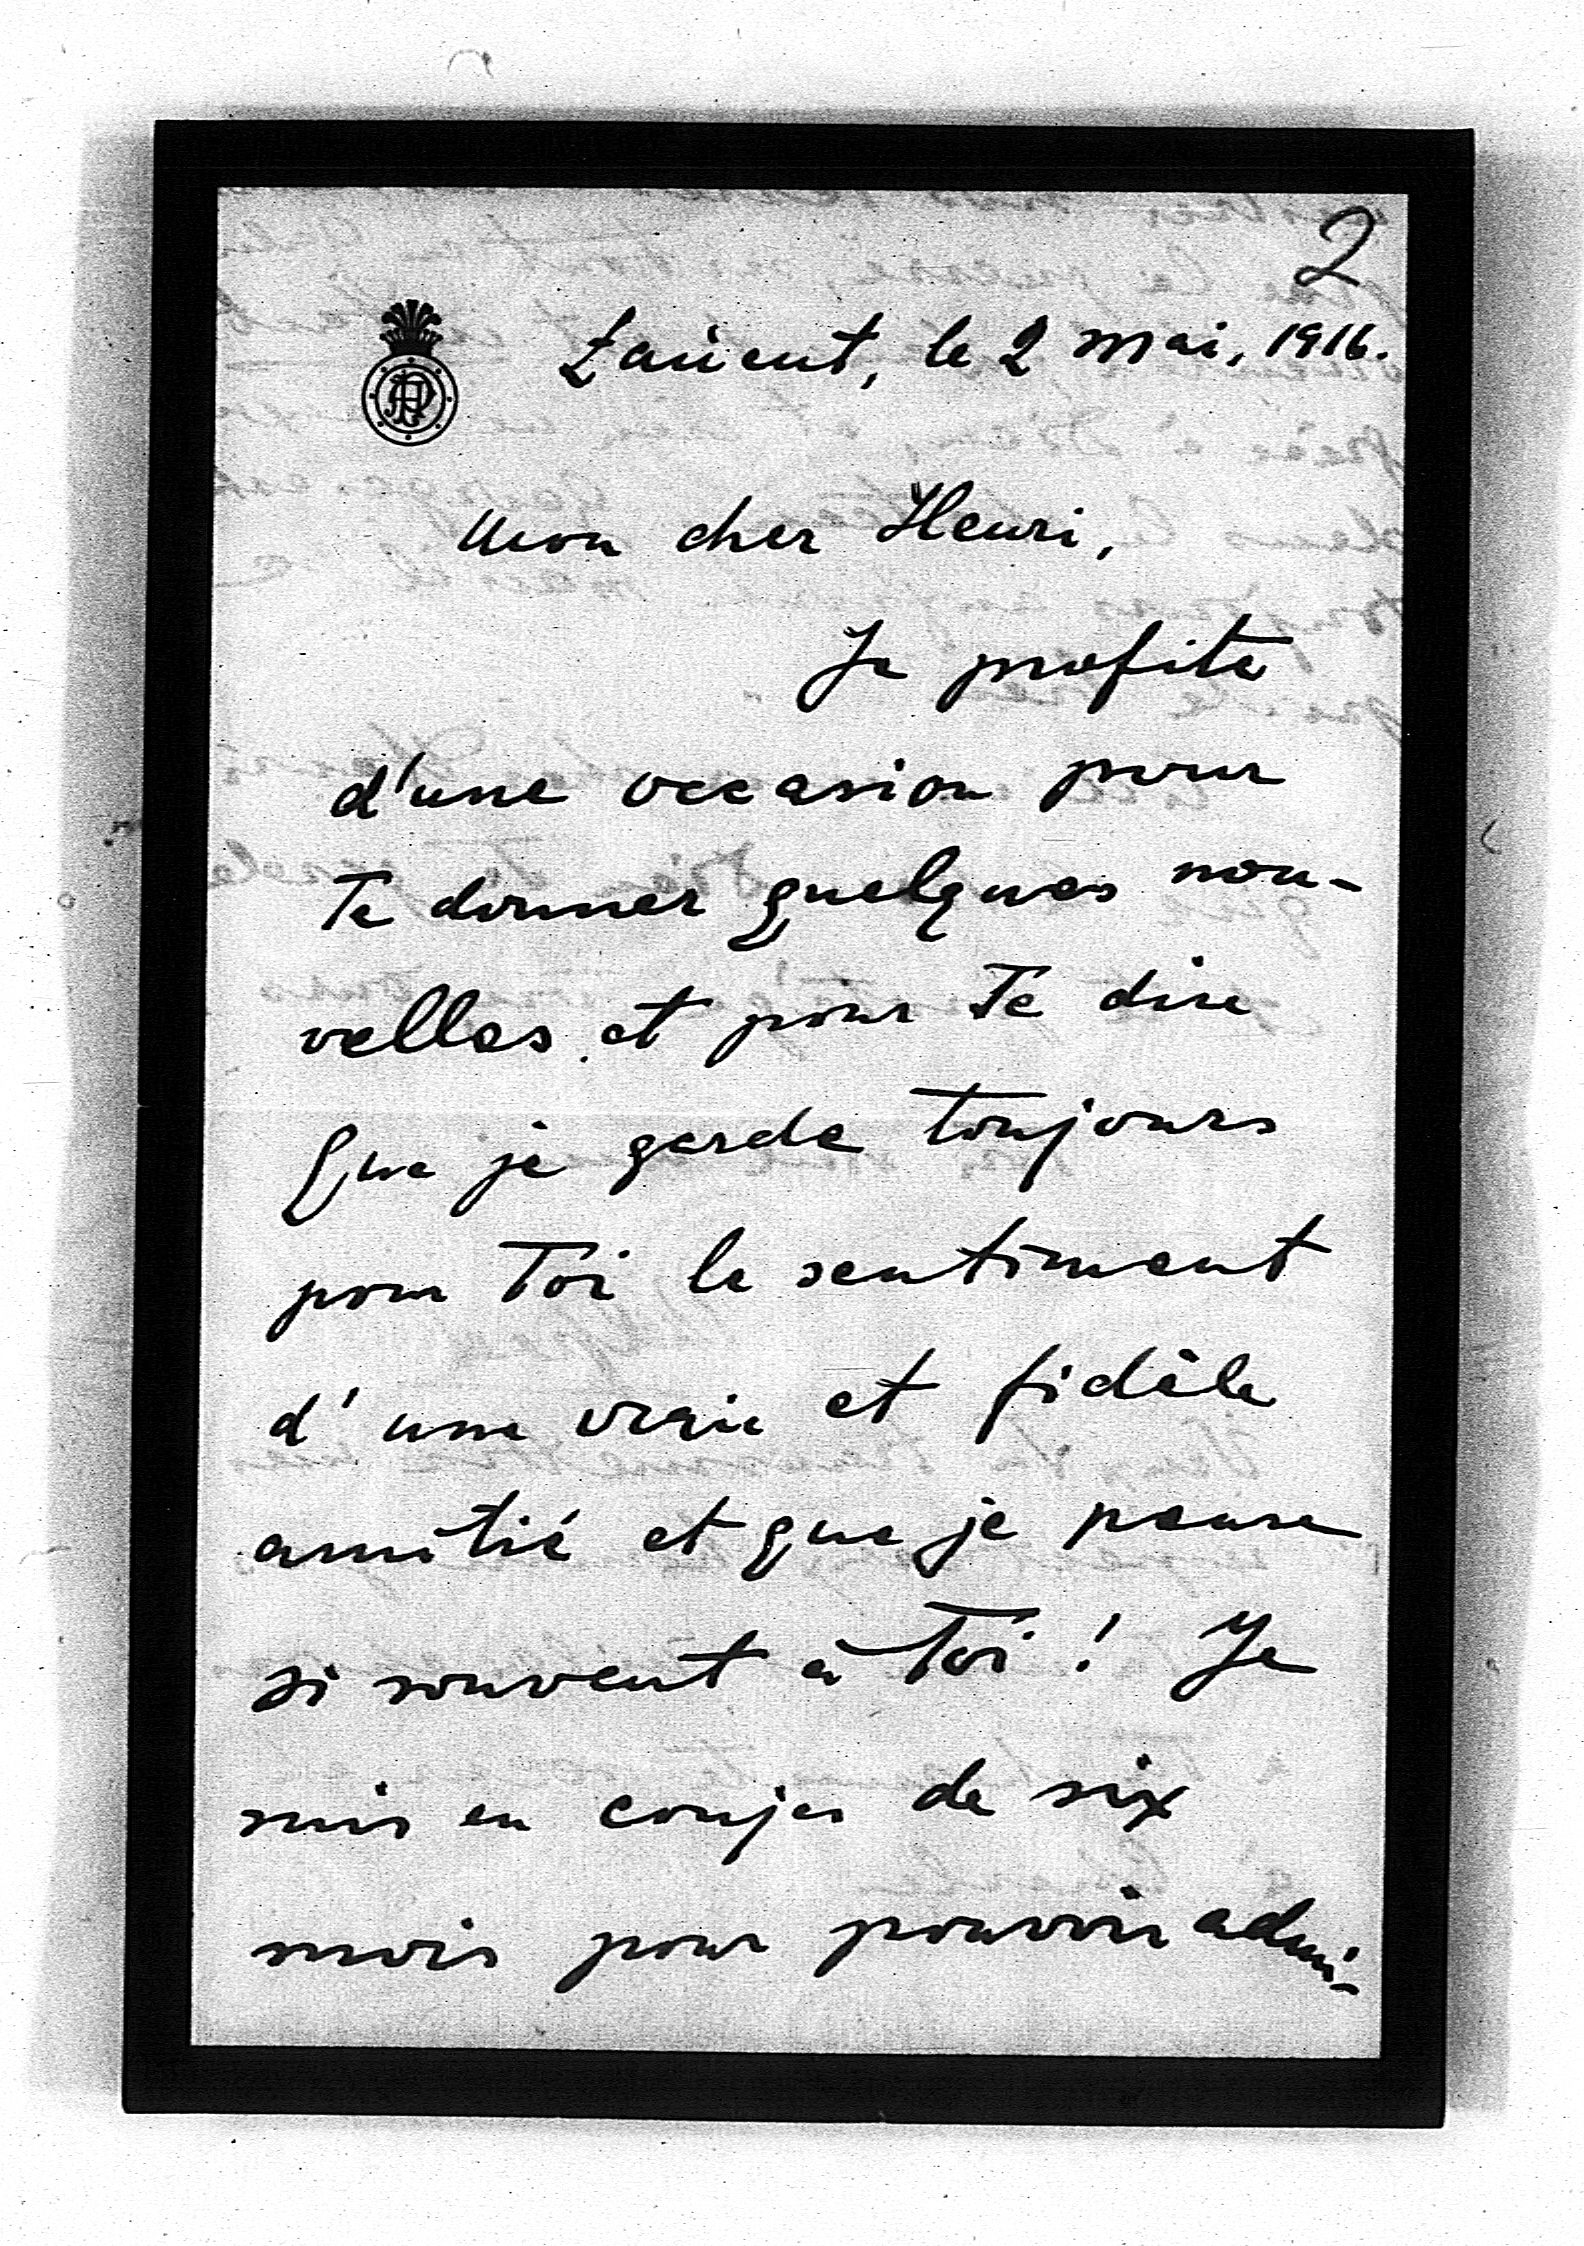 2
Łańcut, le 2 mai, 1916.
Mon cher Henri,
Je profite
d'une occasion pour
Te donner quelques nou-
velles et pour Te dire
Que je garde toujours
pour Toi le sentiment
d'une vraie et fidèle
amitié et que je pense
si souvent à Toi! Je
suis en conjes de six
mois pour pouvoir admi-